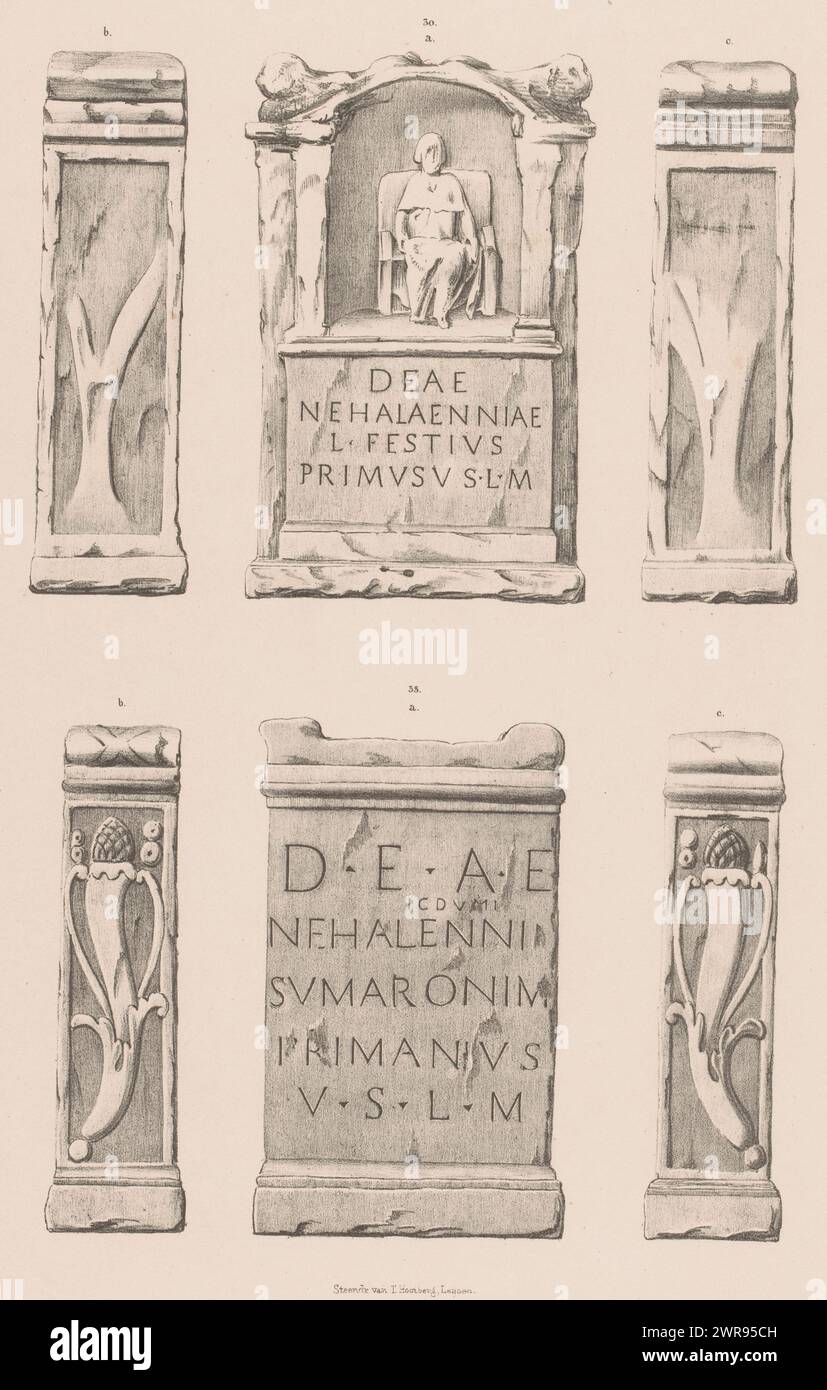 30.
b. a. c.
DEAE
NEHALAENNIAE
L· FESTIVS
PRIMVSV S·L·M
alamy
38.
b. a. c.
D·E·A·E
CDVMI
NEHALENNI
SVMARONIM
PRIMANIVS
V·S·L·M
Steendr. van T. Hooiberg, Leijden.
alamy
Image ID: 2WR95CH
www.alamy.com